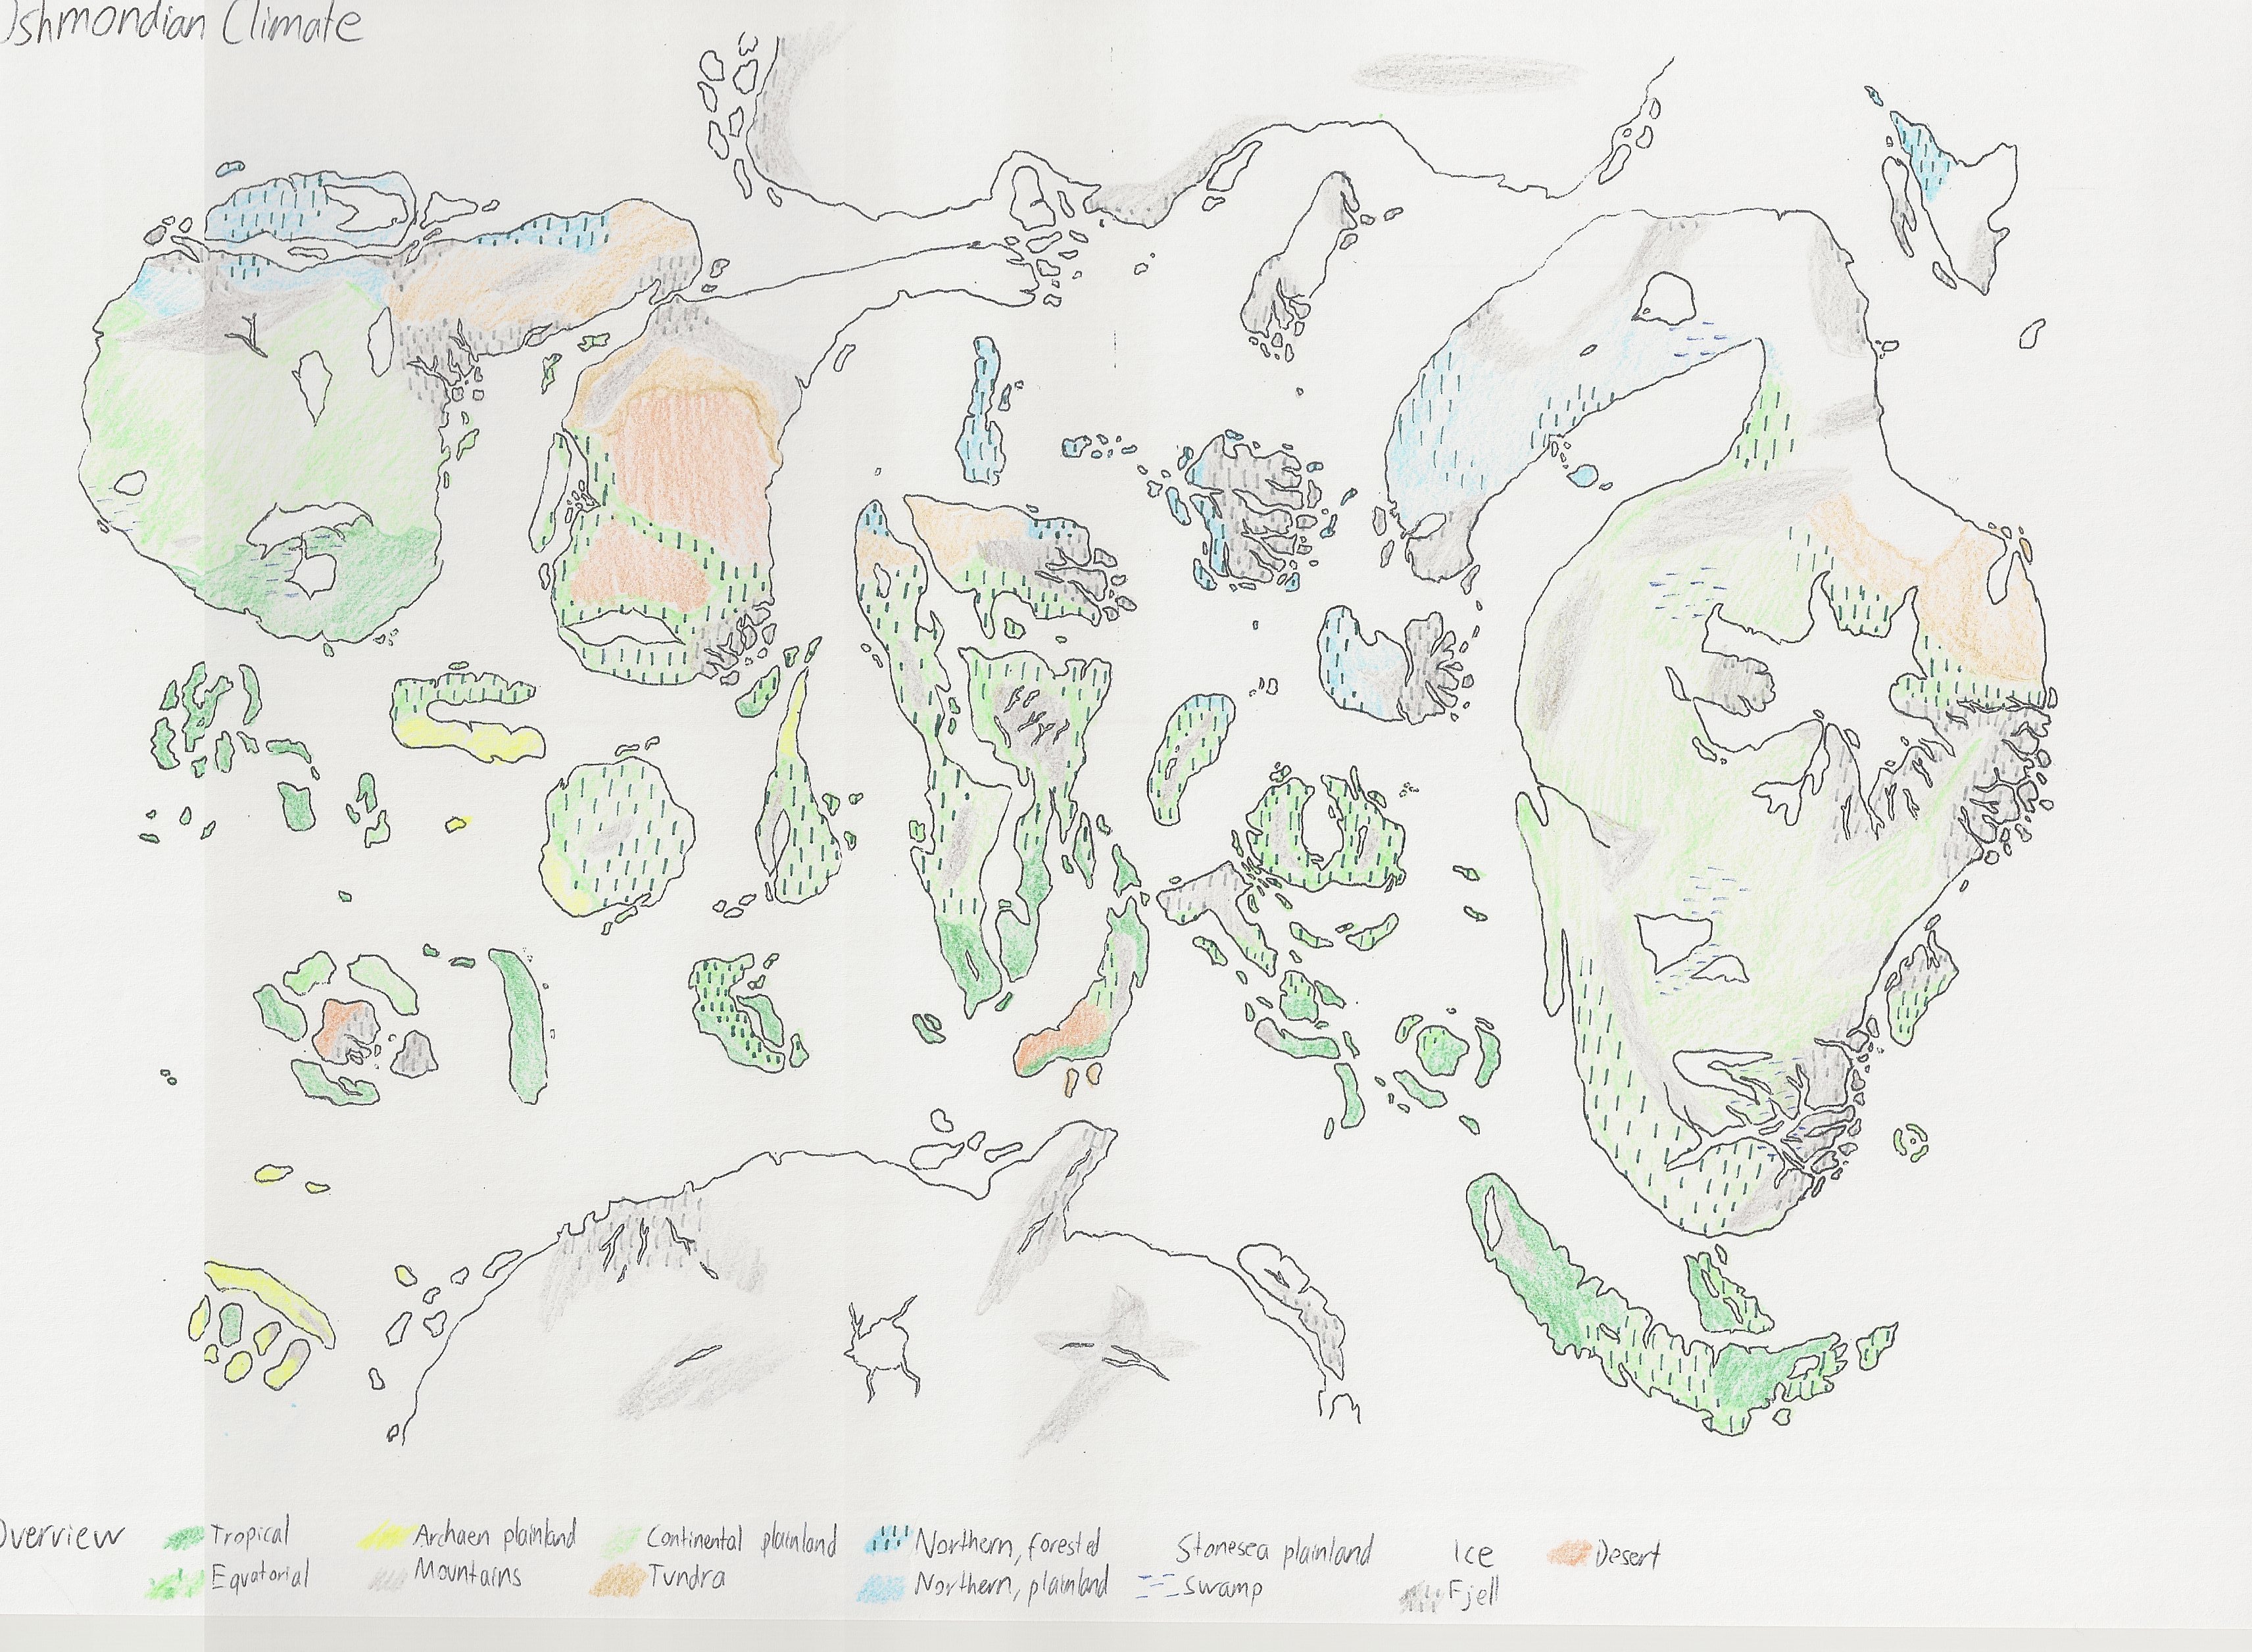 Ushmondian Climate
Overview
Tropical
Equatorial
Archaen plainland
Mountains
Continental plainland
Tundra
Northern, forested
Northern, plainland
Stonesea plainland
Swamp
Ice
Fjell
Desert